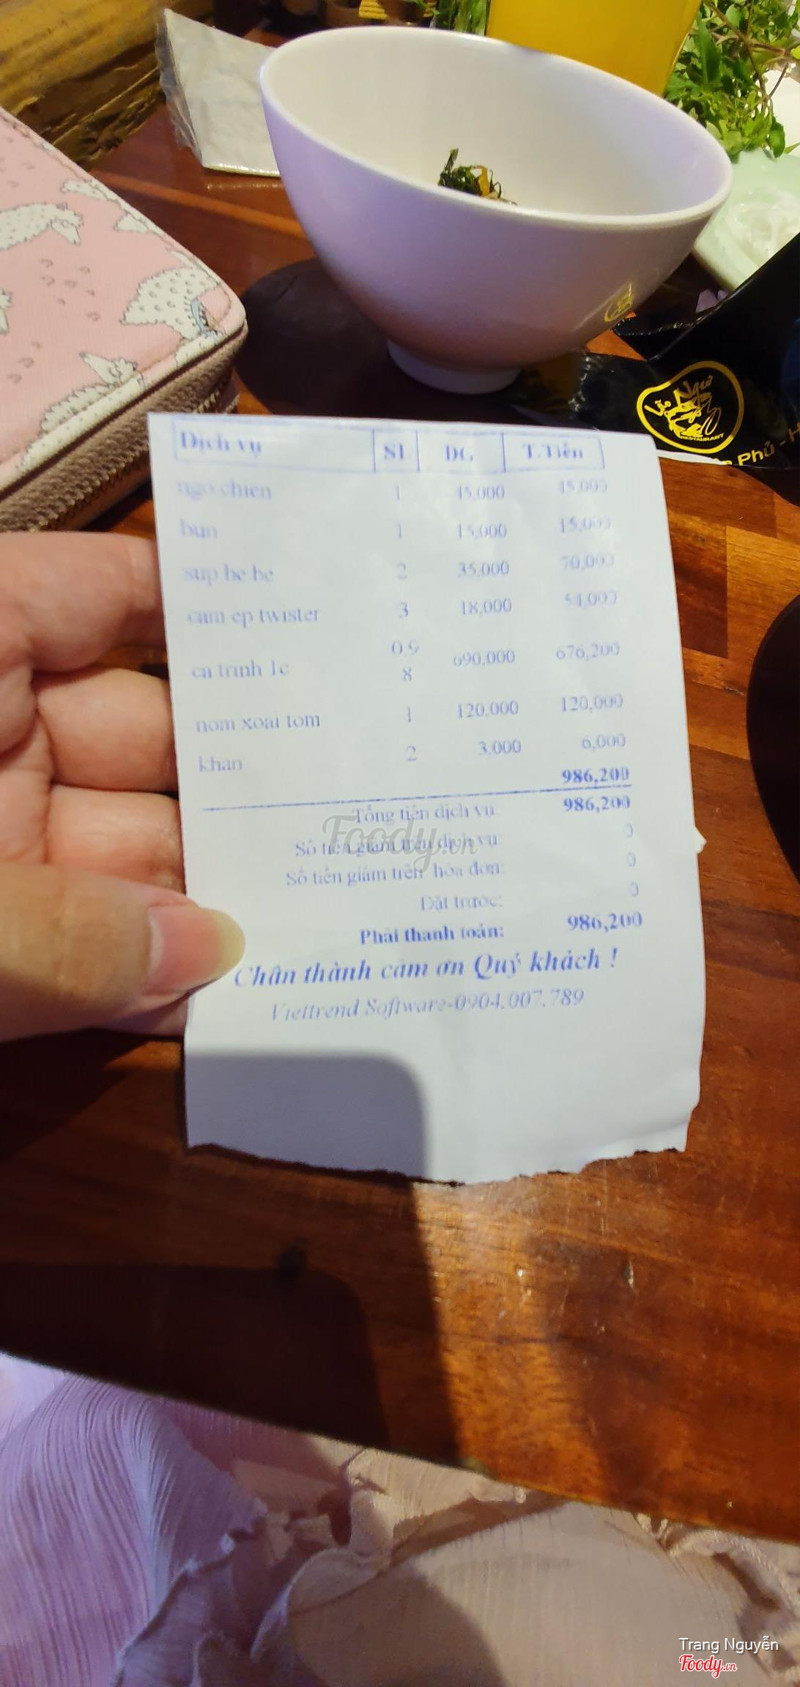 Dịch vụ SL ĐG T.Tiền
ngo chien 1 45,000 45,000
bun 1 15,000 15,000
sup be be 2 35,000 70,000
cam ep twister 3 18,000 54,000
ca trinh 1c 0.98 690,000 676,200
nom xoai tom 1 120,000 120,000
khan 2 3,000 6,000
986,200
Tổng tiền dịch vụ: 986,200
Số tiền giảm trên dịch vụ: 0
Số tiền giảm trên hóa đơn: 0
Đặt trước: 0
Phải thanh toán: 986,200
Chân thành cảm ơn Quý khách !
Viettrend Software-0904.007.789
Foody.vn
RESTAURANT
Phủ - H
Trang Nguyễn
Foody.vn